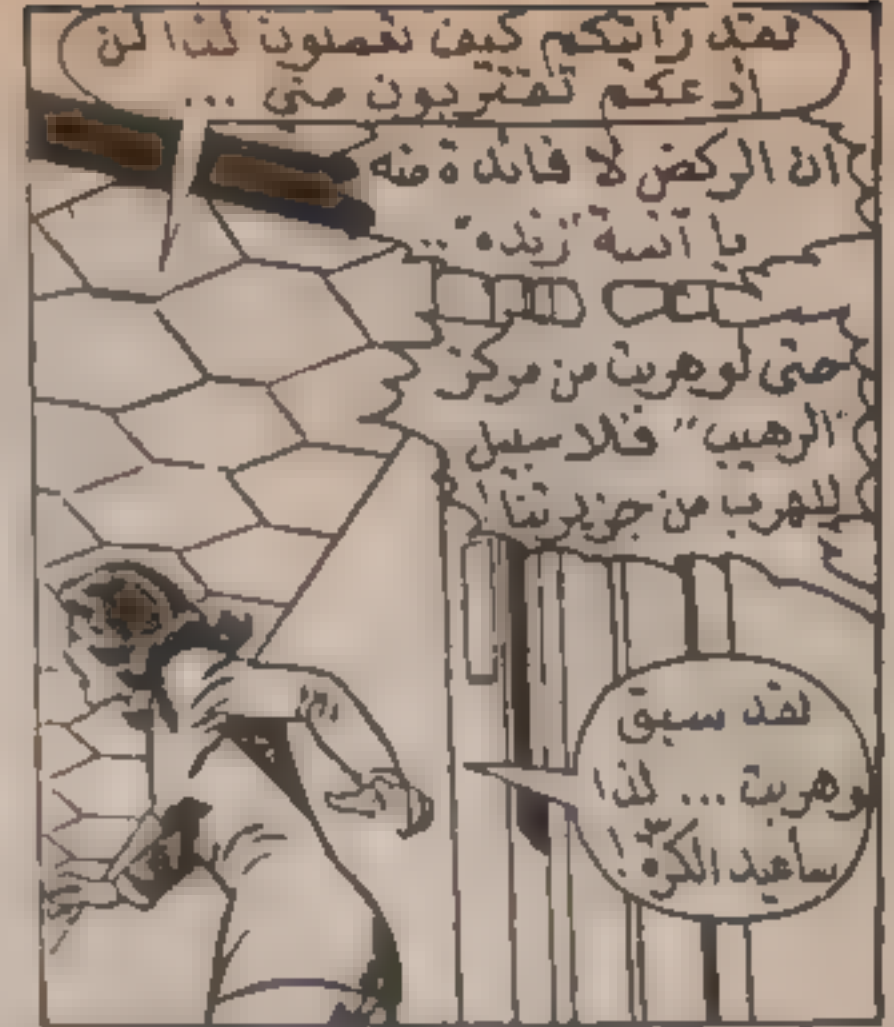 لقد رأيتكم كيف تفعلون لذا لن
أدعكم تقتربون مني ...
ان الركض لا فائدة منه
يا آنسة "زبده" ..
حتى لو هربت من مركز
"الرهيب" فلا سبيل
للهرب من جزيرتنا !
لقد سبق
وهربت ... لذا
سأعيد الكرّة !